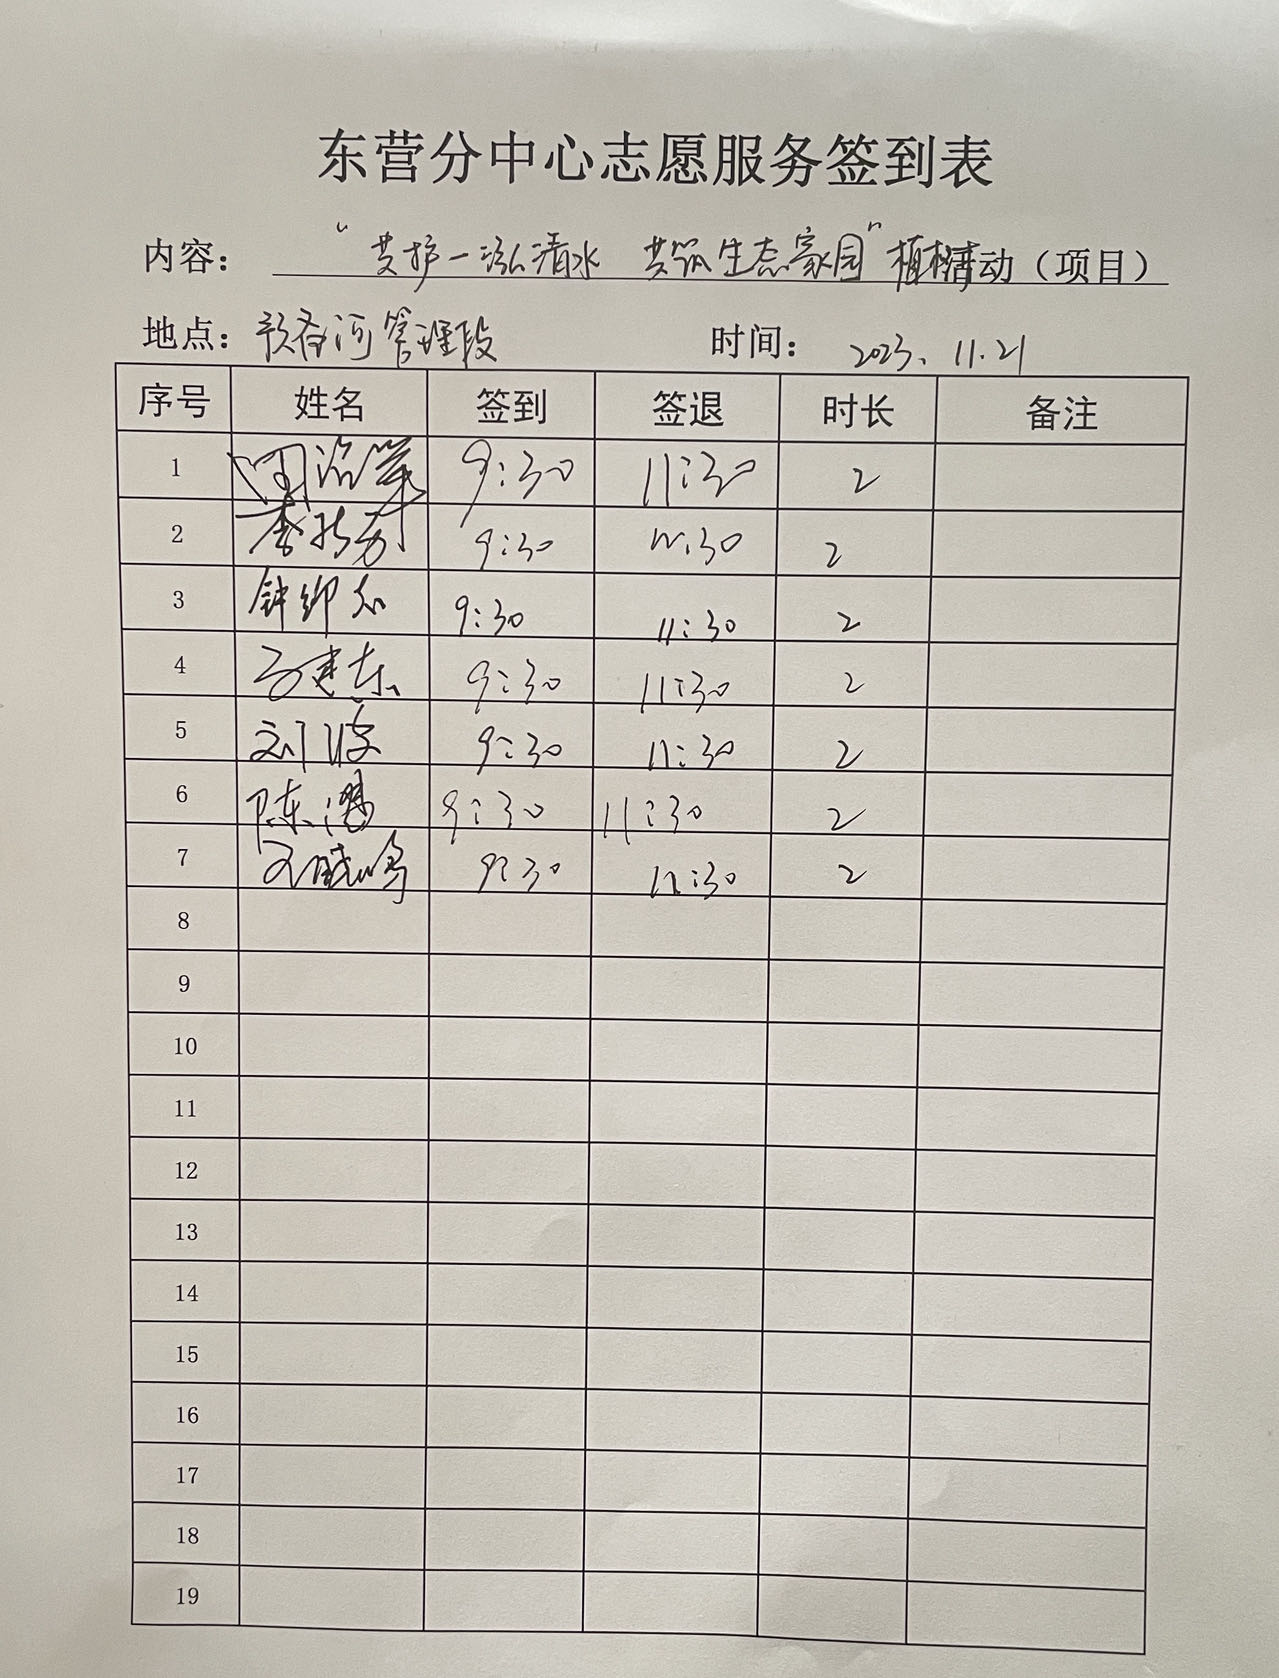 东营分中心志愿服务签到表
内容： “共护一泓清水 共筑生态家园”植树活动（项目）
地点：预备河管理段 时间： 2023.11.21
序号 姓名 签到 签退 时长 备注
1 9:30 11:30 2
2 9:30 11:30 2
3 钟 9:30 11:30 2
4 9:30 11:30 2
5 刘波 9:30 11:30 2
6 陈 9:30 11:30 2
7 9:30 11:30 2
8
9
10
11
12
13
14
15
16
17
18
19